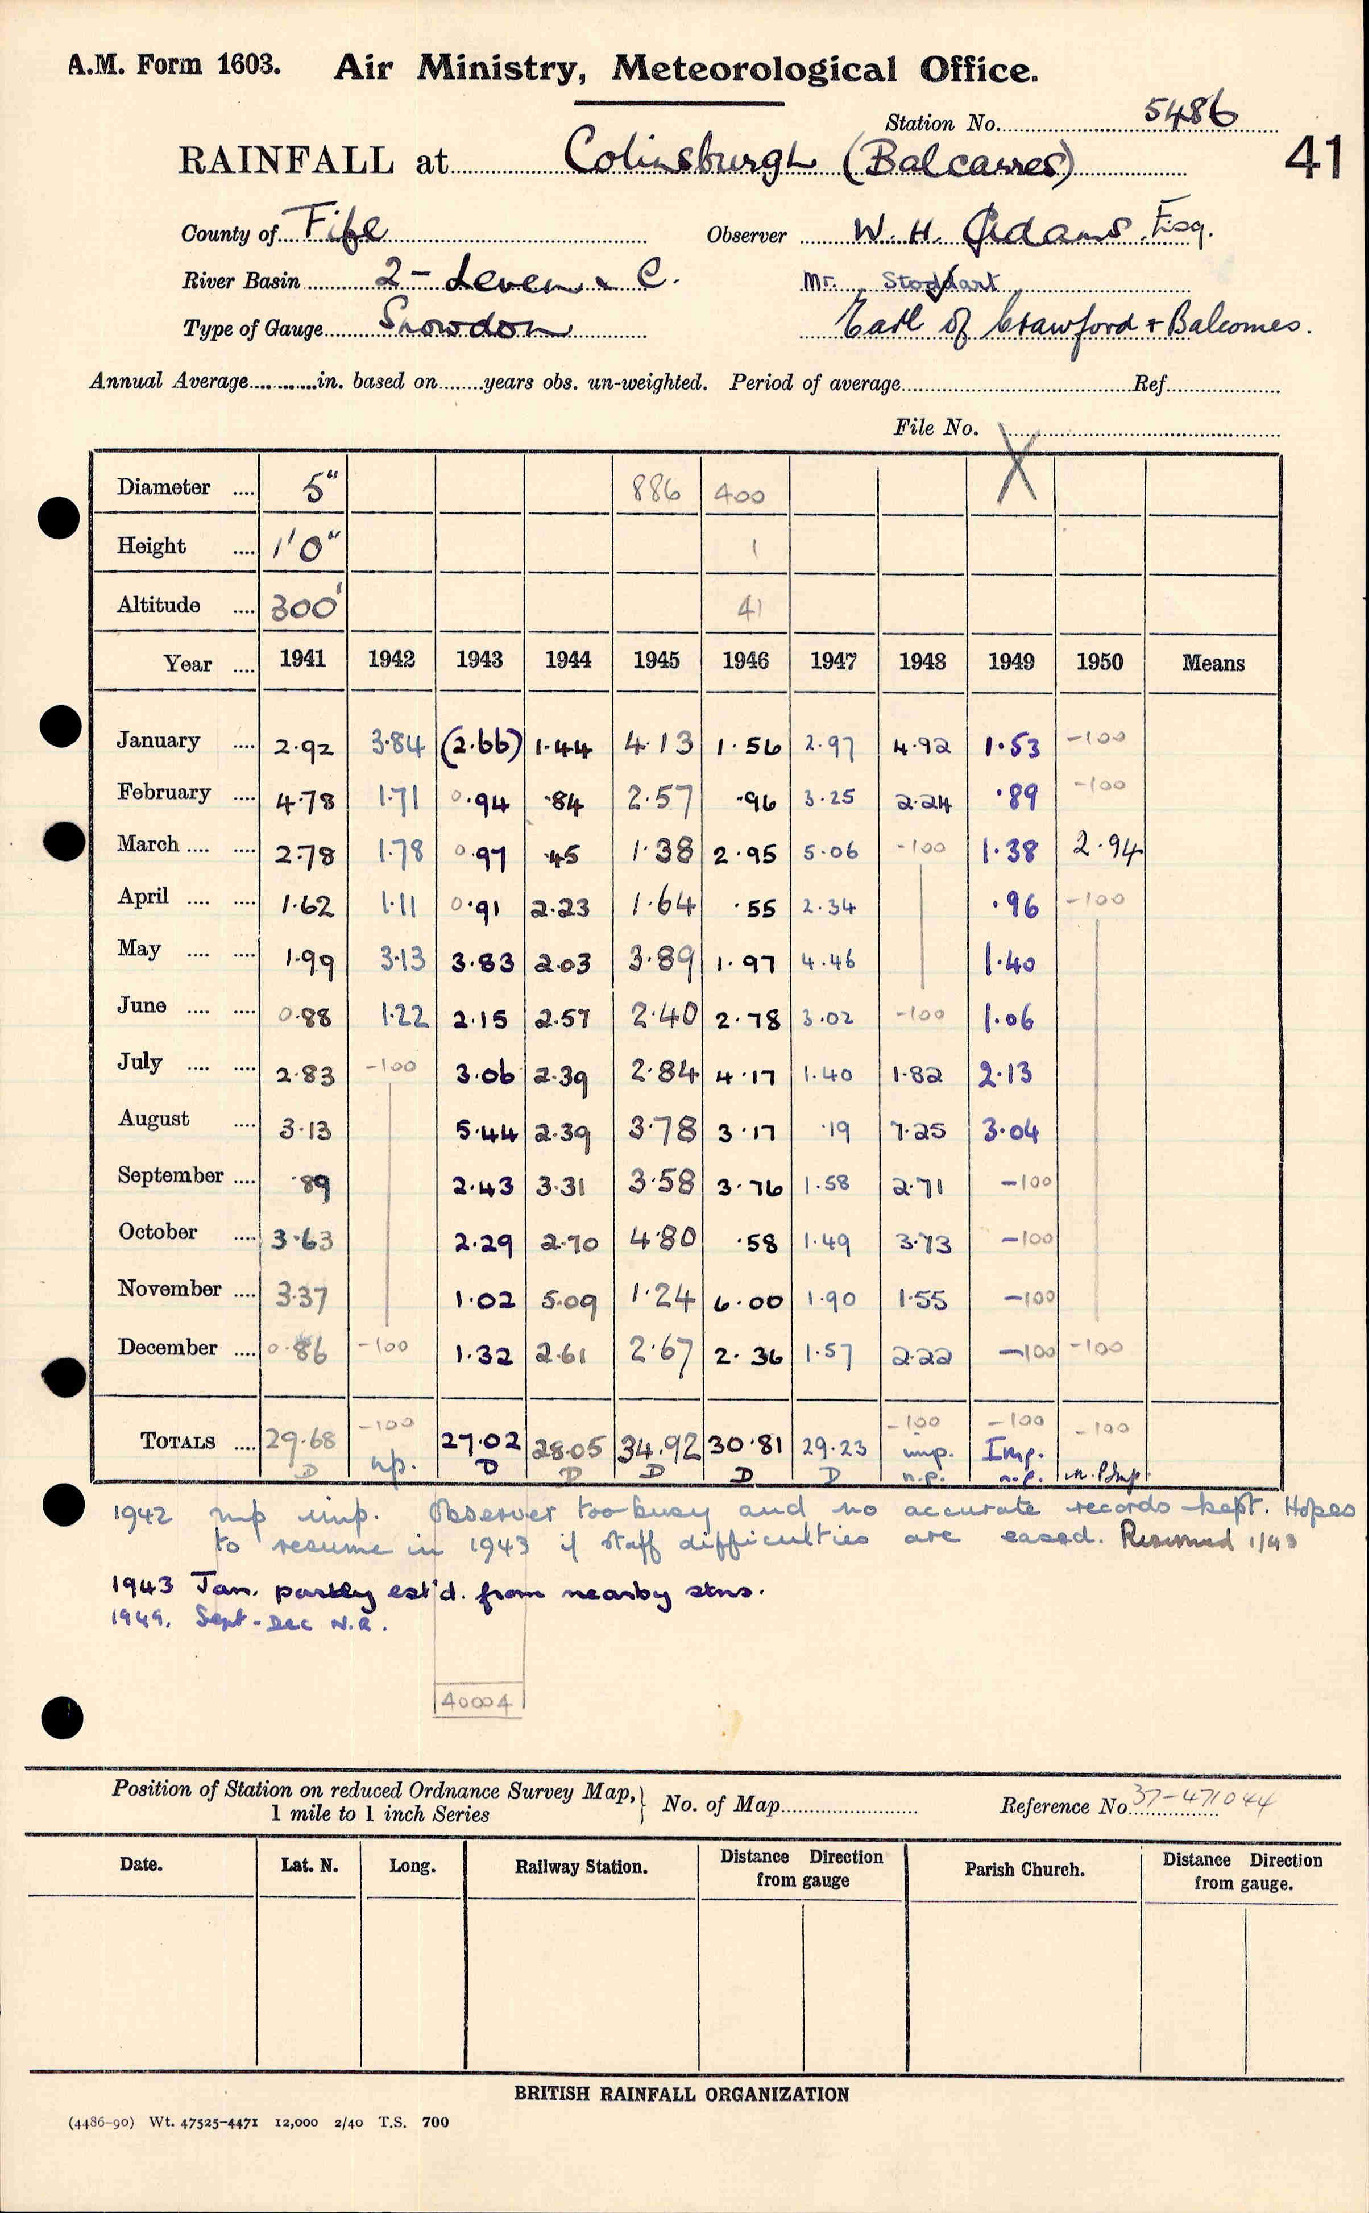 A.M. Form 1603. Air Ministry, Meteorological Office.
Station No. 5486
RAINFALL at Colinsburgh (Balcarres) 41
County of Fife Observer W. H. Adams. Esq.
River Basin 2 - Leven & C. Mr. Stoddart
Type of Gauge Snowdon Earl of Crawford + Balcarres.
Annual Average in. based on years obs. un-weighted. Period of average Ref
File No. X
Diameter .... 5" 886 400
Height .... 1'0" 1
Altitude .... 300' 41
Year .... 1941 1942 1943 1944 1945 1946 1947 1948 1949 1950 Means
January .... 2.92 3.84 (2.66) 1.44 4.13 1.56 2.97 4.92 1.53 -100
February .... 4.78 1.71 0.94 .84 2.57 .96 3.25 2.24 .89 -100
March .... .... 2.78 1.78 0.97 .45 1.38 2.95 5.06 -100 1.38 2.94
April .... .... 1.62 1.11 0.91 2.23 1.64 .55 2.34 .96 -100
May .... .... 1.99 3.13 3.83 2.03 3.89 1.97 4.46 1.40
June .... .... 0.88 1.22 2.15 2.57 2.40 2.78 3.02 -100 1.06
July .... .... 2.83 -100 3.06 2.39 2.84 4.17 1.40 1.82 2.13
August .... 3.13 5.44 2.39 3.78 3.17 .19 7.25 3.04
September .... .89 2.43 3.31 3.58 3.76 1.58 2.71 -100
October .... 3.63 2.29 2.70 4.80 .58 1.49 3.73 -100
November .... 3.37 1.02 5.09 1.24 6.00 1.90 1.55 -100
December .... 0.86 -100 1.32 2.61 2.67 2.36 1.57 2.22 -100 -100
TOTALS .... 29.68 -100 27.02 28.05 34.92 30.81 29.23 -100 -100 -100
D np. D D D D D imp. n.p. Imp. n.p. n.P Imp.
1942 np imp. Observer too busy and no accurate records kept. Hopes
to resume in 1943 if staff difficulties are eased. Resumed 1/43
1943 Jan. partly est'd. from nearby stns.
1949. Sept - Dec N.R.
40004
Position of Station on reduced Ordnance Survey Map, 1 mile to 1 inch Series } No. of Map Reference No. 37-471044
Date. Lat. N. Long. Railway Station. Distance Direction from gauge Parish Church. Distance Direction from gauge.
BRITISH RAINFALL ORGANIZATION
(4486-90) Wt. 47525-4471 12,000 2/40 T.S. 700